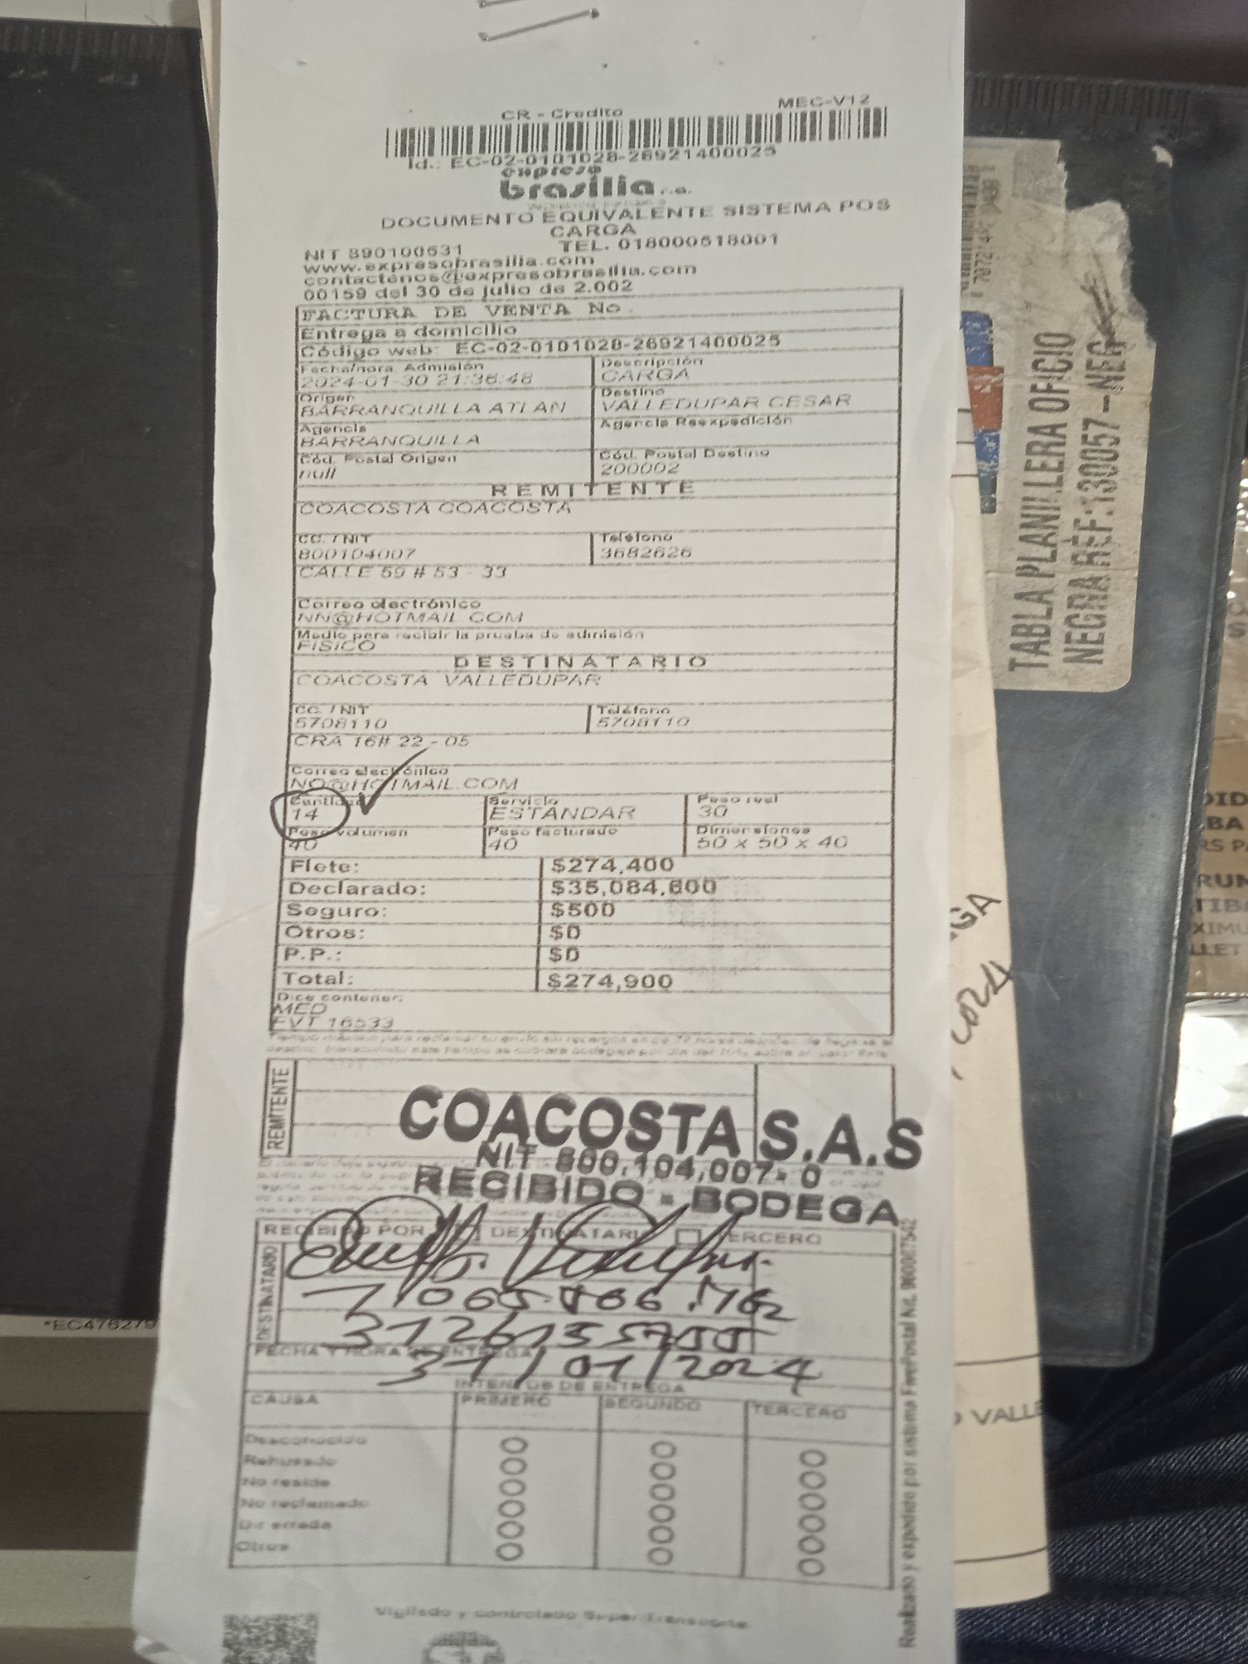 CR - Credito MEC-V12
Id.: EC-02-0101028-26921400025
expreso
brasilia s.a.
DOCUMENTO EQUIVALENTE SISTEMA POS
CARGA
NIT 890100531 TEL. 018000518001
www.expresobrasilia.com
contactenos@expresobrasilia.com
00159 del 30 de julio de 2.002
FACTURA DE VENTA No.
Entrega a domicilio
Código web: EC-02-0101028-26921400025
Fecha/hora Admisión Descripción
2024-01-30 21:36:48 CARGA
Origen Destino
BARRANQUILLA ATLAN VALLEDUPAR CESAR
Agencia Agencia Reexpedición
BARRANQUILLA
Cód. Postal Origen Cód. Postal Destino
null 200002
REMITENTE
COACOSTA COACOSTA
CC. / NIT Teléfono
800104007 3682626
CALLE 59 # 53 - 33
Correo electrónico
NN@HOTMAIL.COM
Medio para recibir la prueba de admisión
FISICO
DESTINATARIO
COACOSTA VALLEDUPAR
CC. / NIT Teléfono
5708110 5708110
CRA 16# 22 - 05
Correo electrónico
NO@HOTMAIL.COM
Cantidad Servicio Peso real
14 ESTANDAR 30
Peso volumen Peso facturado Dimensiones
40 40 50 x 50 x 40
Flete: $274,400
Declarado: $35,084,600
Seguro: $500
Otros: $0
P.P.: $0
Total: $274,900
Dice contener:
MED
FVT 16533
REMITENTE
COACOSTA S.A.S
NIT 800.104.007-0
RECIBIDO - BODEGA
RECIBIDO POR DESTINATARI TERCERO
DESTINATARIO
FECHA Y HORA DE ENTREGA
31/01/2024
INTENTOS DE ENTREGA
CAUSA PRIMERO SEGUNDO TERCERO
Desconocido
Rehusado
No reside
No reclamado
Dir errada
Otros
Vigilado y controlado Super Transporte
Realizado y expedido por sistema FivePostal Nit.
TABLA PLANILLERA OFICIO
NEGRA REF:130057 - NEG
*EC476279
VALLE